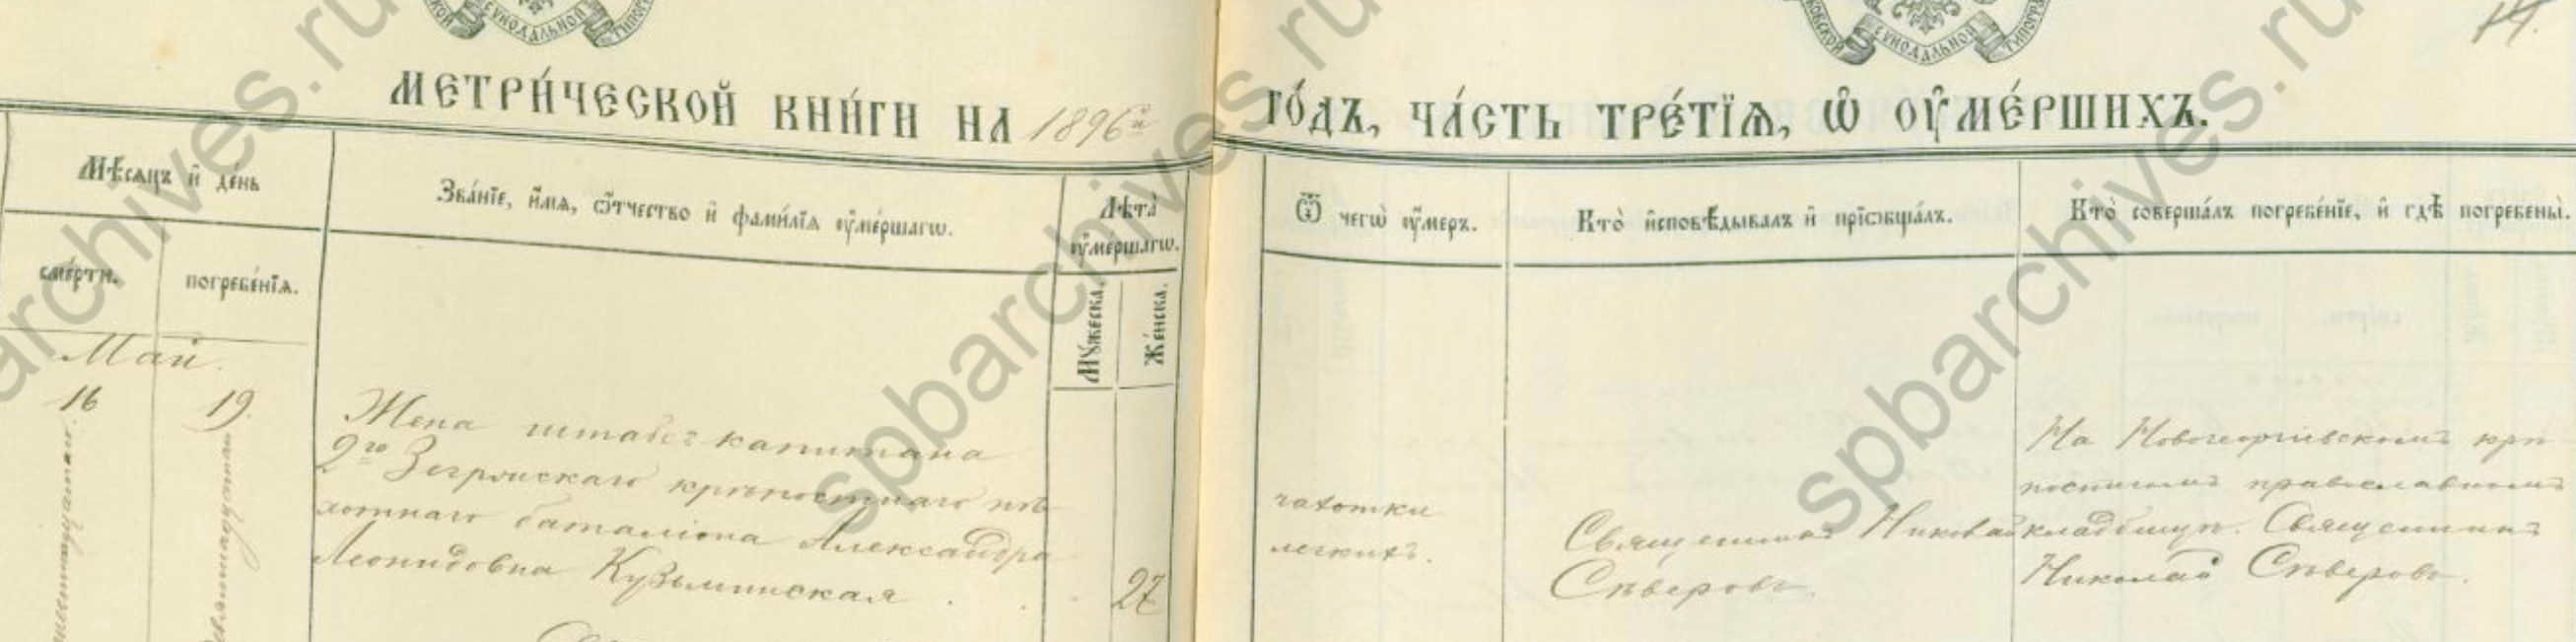 СУНОДАЛЬНОЙ ТИПОГР
МОСКОВСКОЙ СУНОДАЛЬНОЙ ТИПОГРА
МЕТРИ́ЧЕСКОЙ КНИ́ГИ НА 1896й ГО́ДЪ, ЧА́СТЬ ТРЕ́ТЇѦ, Ѡ҆ ОУ҆МЕ́РШИХЪ.
Мѣ́сѧцъ и҆ де́нь
сме́рти. погребе́нїѧ.
Зва́нїе, и҆́мѧ, ѻ҆́тчество и҆ фами́лїѧ ᲂу҆ме́ршагѡ.
Лѣ́та ᲂу҆ме́ршагѡ.
Мꙋ́жеска. Же́нска.
Ѿ чегѡ̀ ᲂу҆́меръ.
Кто̀ и҆сповѣ́дывалъ и҆ прїѡбща́лъ.
Кто̀ соверша́лъ погребе́нїе, и҆ гдѣ̀ погребены̀.
Май.
16 19.
шестнадцатаго
девятнадцатаго
Жена штабсъ-капитана
2го Зегржскаго крѣпостнаго пѣ
хотнаго баталіона Александра
Леонидовна Кузьминская
27
чахотки
легкихъ.
Священникъ Николай
Сѣверовъ.
На Новогеоргіевскомъ крѣ
постномъ православномъ
кладбищѣ. Священникъ
Николай Сѣверовъ.
spbarchives.ru
spbarchives.ru
spbarchives.ru